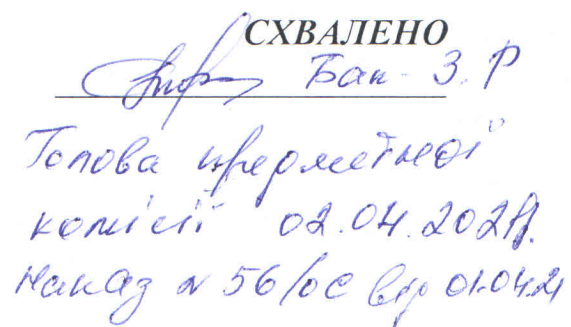 СХВАЛЕНО
Бак З.Р
Голова предметної
комісії 02.04.2021р.
Наказ № 56/ОС від 01.04.21